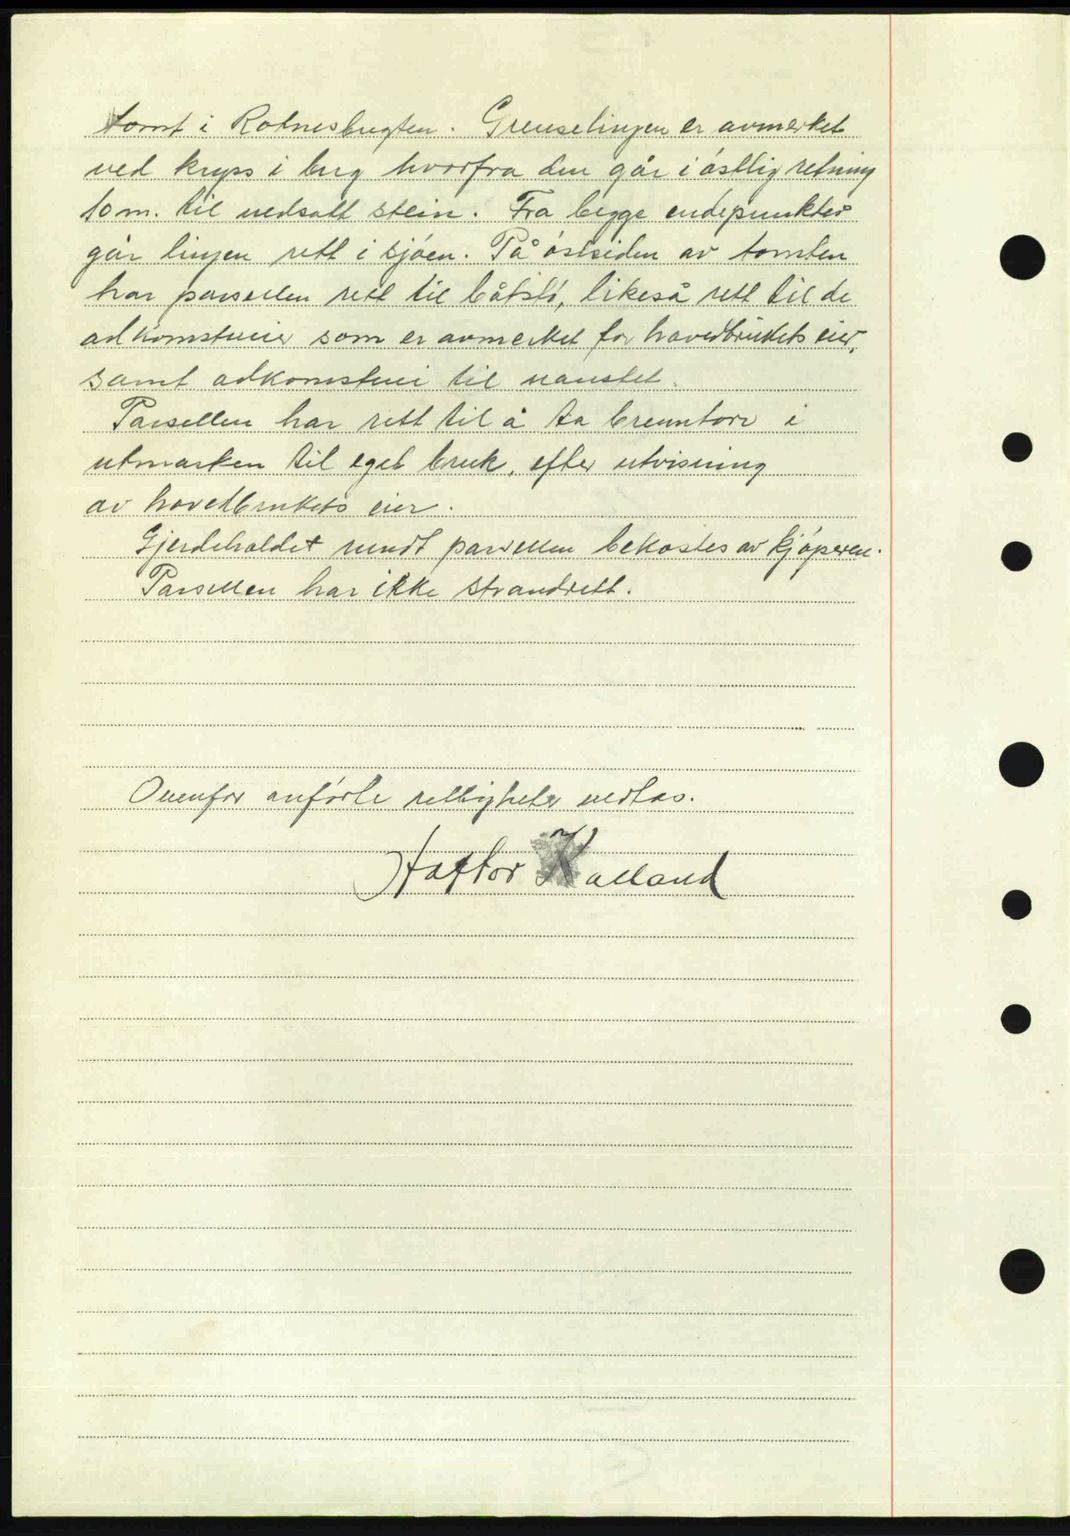 tomt i Rotnesbugten. Grenselinjen er avmerket
ved kryss i berg hvorfra den går i østlig retning
10 m. til nedsatt stein. Fra begge endepunkter
går linjen rett i sjøen. På østsiden av tomten
har parsellen rett til båtstø, likeså rett til de
adkomstveier som er avmerket for hovedbrukets eier,
samt adkomstvei til naustet.
Parsellen har rett til å ta brenntorv i
utmarken til eget bruk, efter utvisning
av hovedbrukets eier.
Gjerdeholdet rundt parsellen bekostes av kjøperen.
Parsellen har ikke strandrett.
Ovenfor anførte rettigheter vedtas.
Haftor Kalland